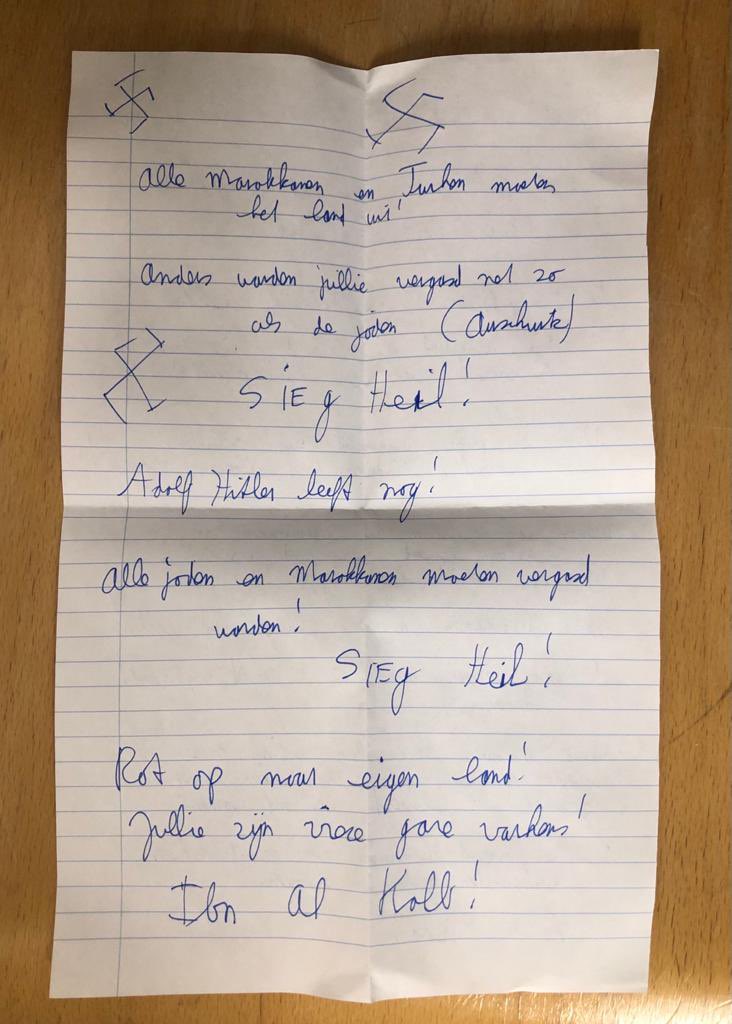 Alle Marokkanen en Turken moeten
het land uit!
Anders worden jullie vergast net zo
als de joden (Auschwitz)
SIEg Heil!
Adolf Hitler leeft nog!
Alle joden en Marokkanen moeten vergast
worden!
SIEg Heil!
Rot op naar eigen land!
Jullie zijn vieze gore varkens!
Ibn Al Kalb!